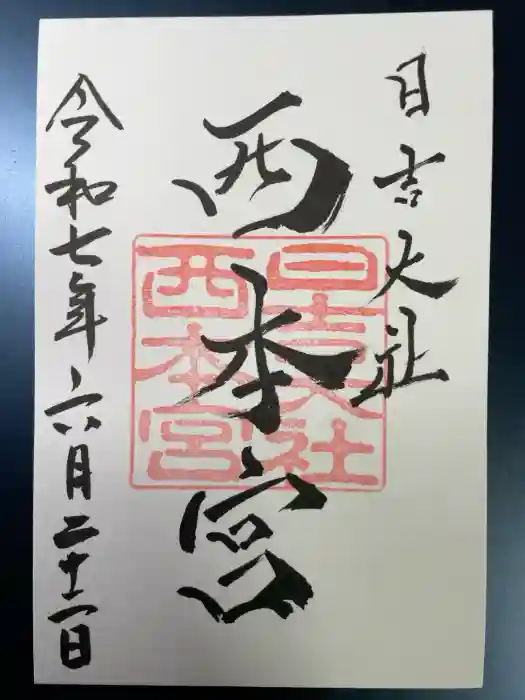 日吉大社
西本宮
令和七年六月二十一日
日吉大社
西本宮